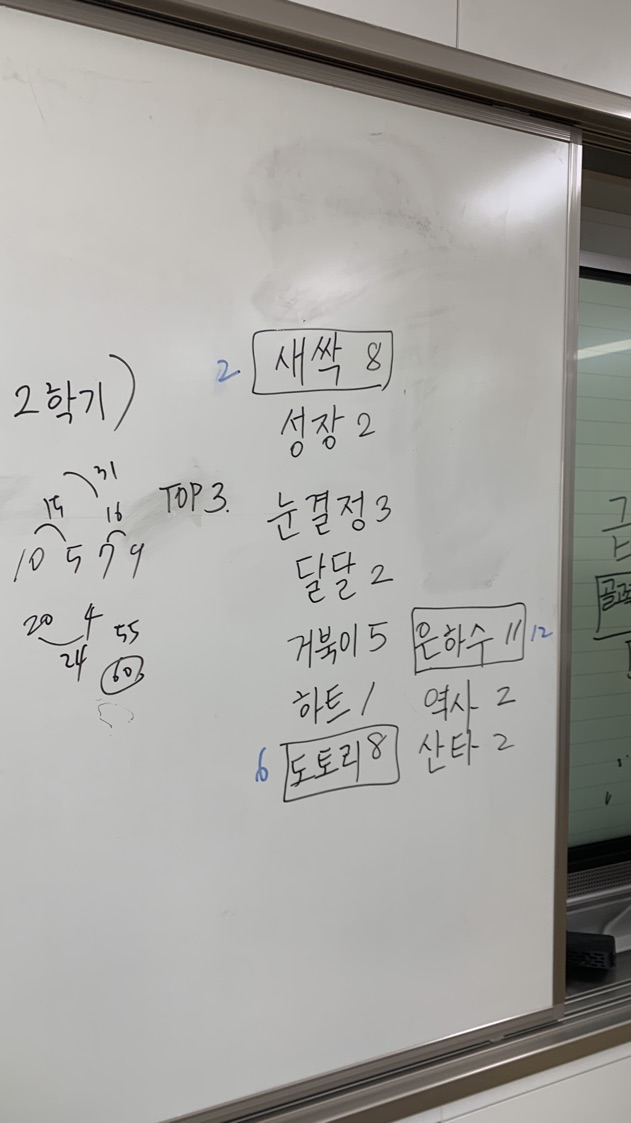 2학기)
31
15 16
10 5 7 9
20 4 55
24
60
TOP 3.
2 새싹 8
성장 2
눈결정 3
달달 2
거북이 5
하트 1
6 도토리 8
은하수 11 12
역사 2
산타 2